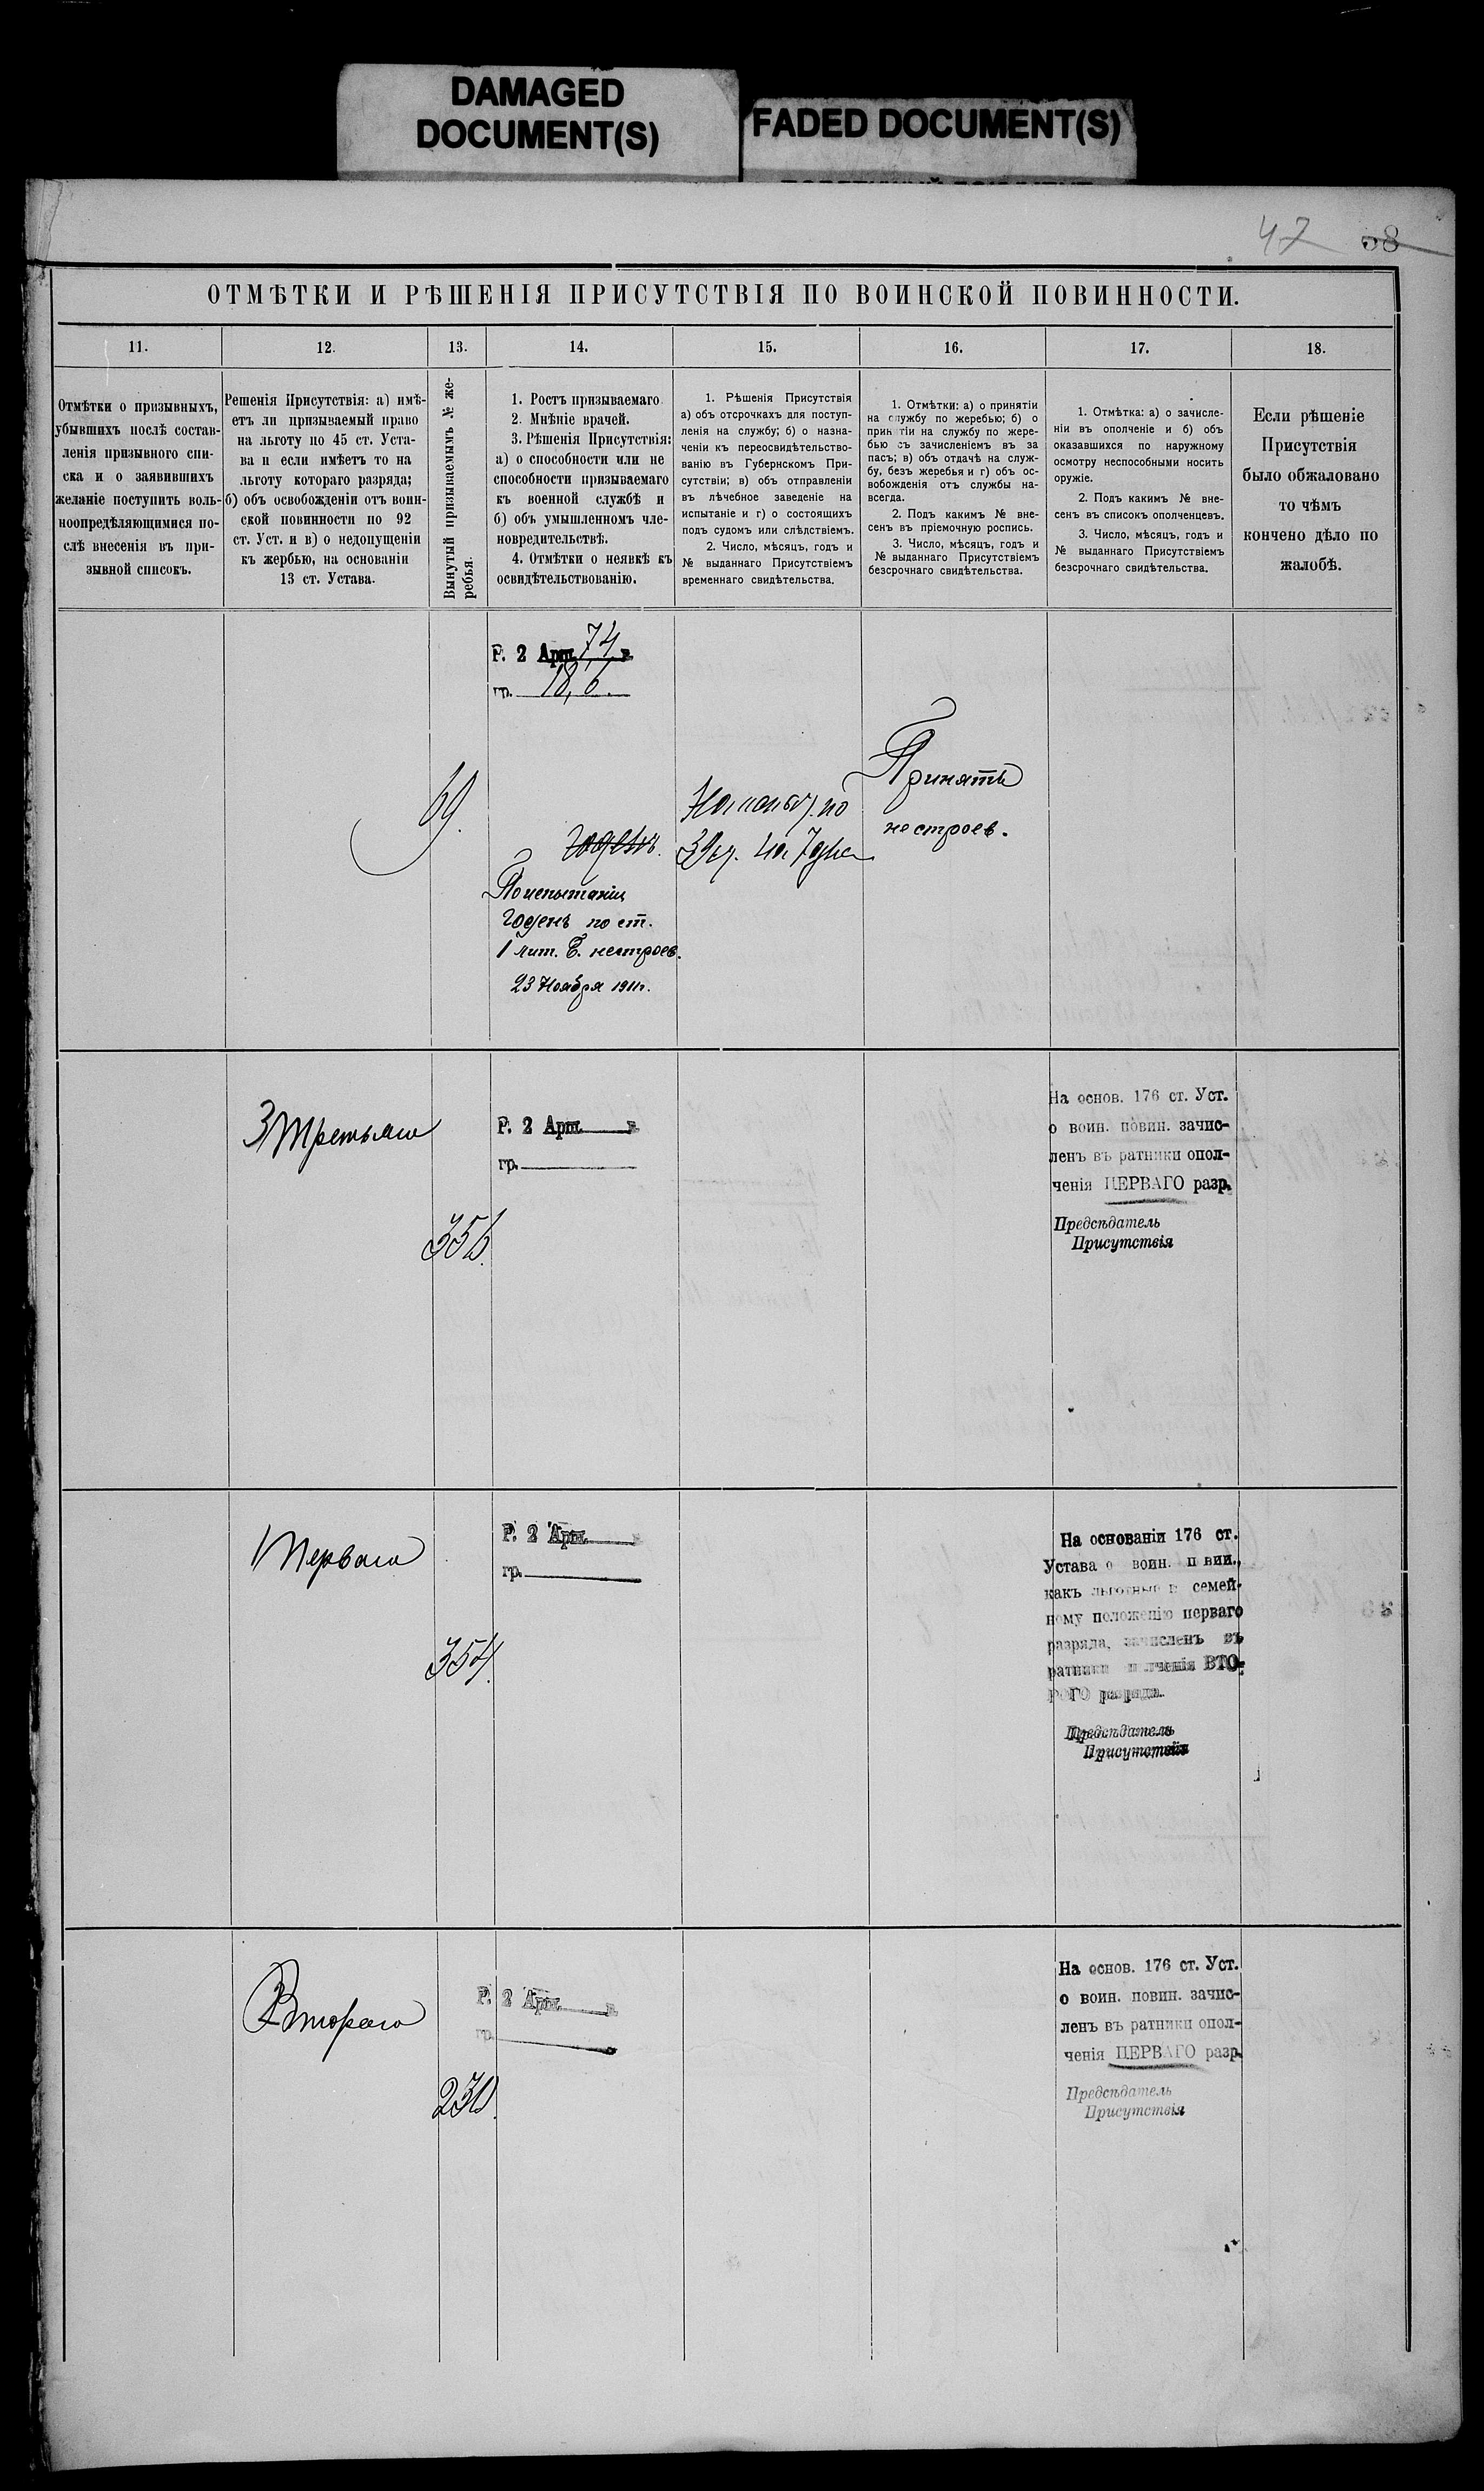 DAMAGED
DOCUMENT(S)
FADED DOCUMENT(S)
47 58
ОТМѢТКИ И РѢШЕНІЯ ПРИСУТСТВІЯ ПО ВОИНСКОЙ ПОВИННОСТИ.
11.
12.
13.
14.
15.
16.
17.
18.
Отмѣтки о призывныхъ,
убывшихъ послѣ состав-
ленія призывного спи-
ска и о заявившихъ
желаніе поступить воль-
ноопредѣляющимися по-
слѣ внесенія въ при-
зывной списокъ.
Решенія Присутствія: а) имѣ-
етъ ли призываемый право
на льготу по 45 ст. Уста-
ва и если имѣетъ то на
льготу котораго разряда;
б) объ освобожденіи отъ воин-
ской повинности по 92
ст. Уст. и в) о недопущеніи
къ жербью, на основаніи
13 ст. Устава.
Вынутый призываемымъ № же-
ребья.
1. Ростъ призываемаго
2. Мнѣніе врачей.
3. Рѣшенія Присутствія:
а) о способности или не
способности призываемаго
къ военной службѣ и
б) объ умышленномъ чле-
новредительствѣ.
4. Отмѣтки о неявкѣ къ
освидѣтельствованію.
1. Рѣшенія Присутствія
а) объ отсрочкахъ для поступ-
ленія на службу; б) о назна-
ченіи къ переосвидѣтельство-
ванію въ Губернскомъ При-
сутствіи; в) объ отправленіи
въ лѣчебное заведеніе на
испытаніе и г) о состоящихъ
подъ судомъ или слѣдствіемъ.
2. Число, мѣсяцъ, годъ и
№ выданнаго Присутствіемъ
временнаго свидѣтельства.
1. Отмѣтки: а) о принятіи
на службу по жеребью; б) о
принятіи на службу по жере-
бью съ зачисленіемъ въ за
пасъ; в) объ отдачѣ на служ-
бу, безъ жеребья и г) объ ос-
вобожденія отъ службы на-
всегда.
2. Подъ какимъ № вне-
сенъ въ пріемочную роспись.
3. Число, мѣсяцъ, годъ и
№ выданнаго Присутствіемъ
безсрочнаго свидѣтельства.
1. Отмѣтка: а) о зачисле-
ніи въ ополченіе и б) объ
оказавшихся по наружному
осмотру неспособными носить
оружіе.
2. Подъ какимъ № вне-
сенъ въ списокъ ополченцевъ.
3. Число, мѣсяцъ, годъ и
№ выданнаго Присутствіемъ
безсрочнаго свидѣтельства.
Если рѣшеніе
Присутствія
было обжаловано
то чѣмъ
кончено дѣло по
жалобѣ.
Р. 2 Арш. 7,4 в.
гр. 18,6.
69.
годенъ.
По испытаніи
годенъ по ст.
1 лит. Б. нестроев.
23 Ноября 1911г.
На испыт. по
Принять
нестроев.
3 Третьяго
356.
Р. 2 Арш. в.
гр.
На основ. 176 ст. Уст.
о воин. повин. зачис-
ленъ въ ратники опол-
ченія ПЕРВАГО разр.
Предсѣдатель
Присутствія
1 Перваго
354.
Р. 2 Арш. в
гр.
На основаніи 176 ст.
Устава о воин. п вин.,
какъ льготные п семей-
ному положенію перваго
разряда, зачисленъ въ
ратники п лченія ВТО-
РОГО разряда.
Предсѣдатель
Присутствія
2 Второго
230.
Р. 2 Арш. в.
гр.
На основ. 176 ст. Уст.
о воин. повин. зачис-
ленъ въ ратники опол-
ченія ПЕРВАГО разр.
Предсѣдатель
Присутствія